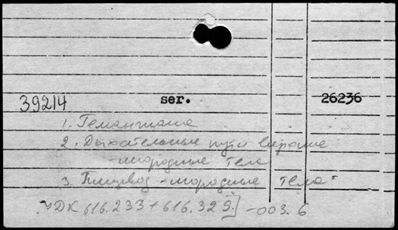 39214 ser. 26236
1. Гемангиома
2. Дыхательные пути верхние
-инородные тела
3. Пищевод -инородные тела
УДК 616.233+616.329]-003.6